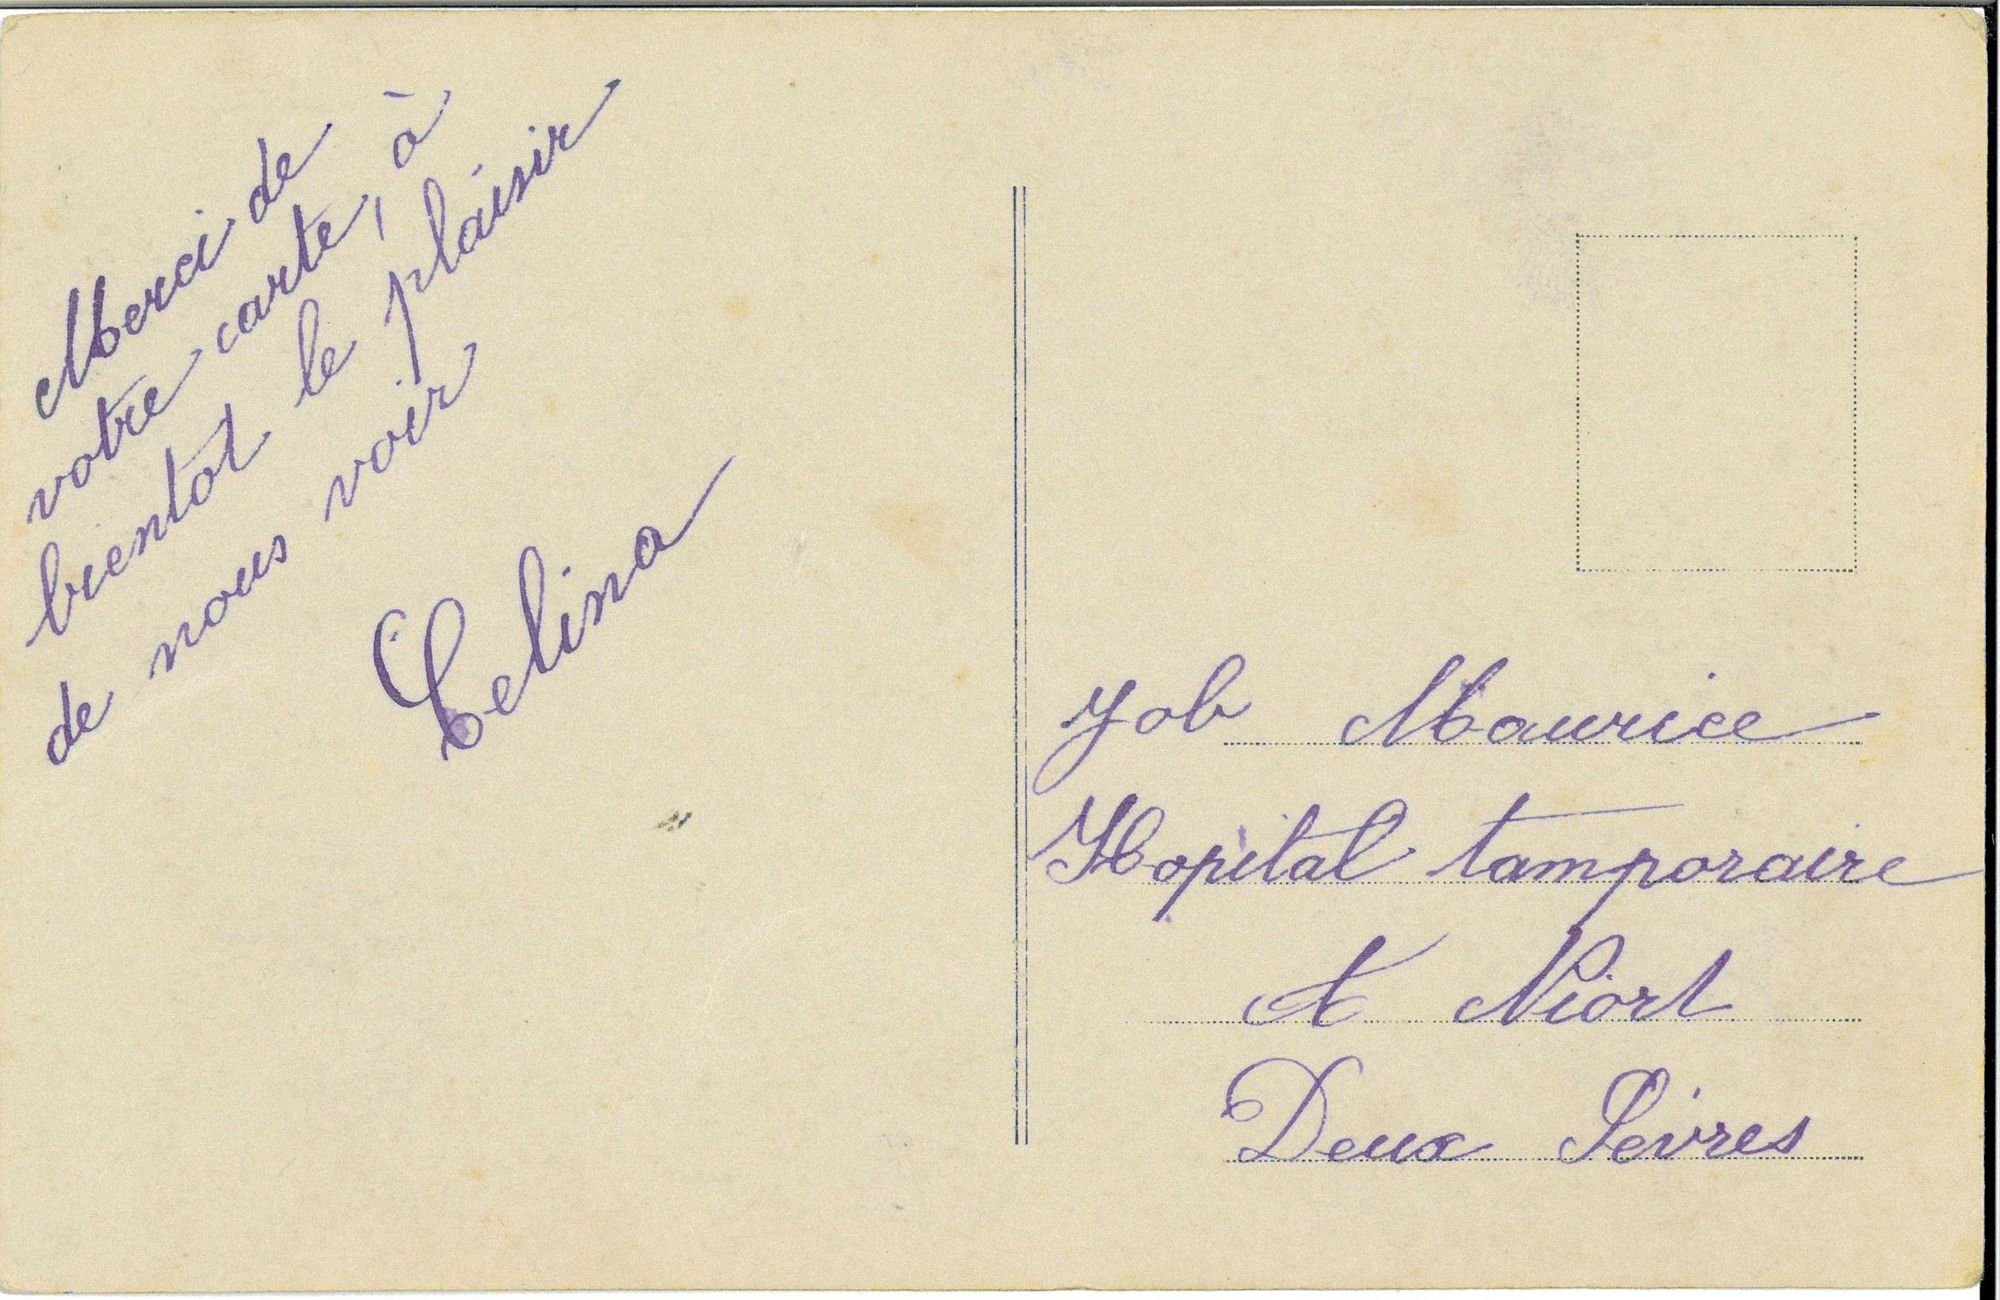 Merci de
votre carte, à
bientot le plaisir
de nous voir
Celina
Job Maurice
Hopital tamporaire
A Niort
Deux Sèvres